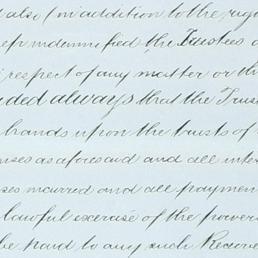 also (in addition to the
indemnified the Trustees
respect of any matter or
always that the
hands upon the trusts of
as aforesaid and all
incurred and all
lawful exercise of the powers
be paid to any such